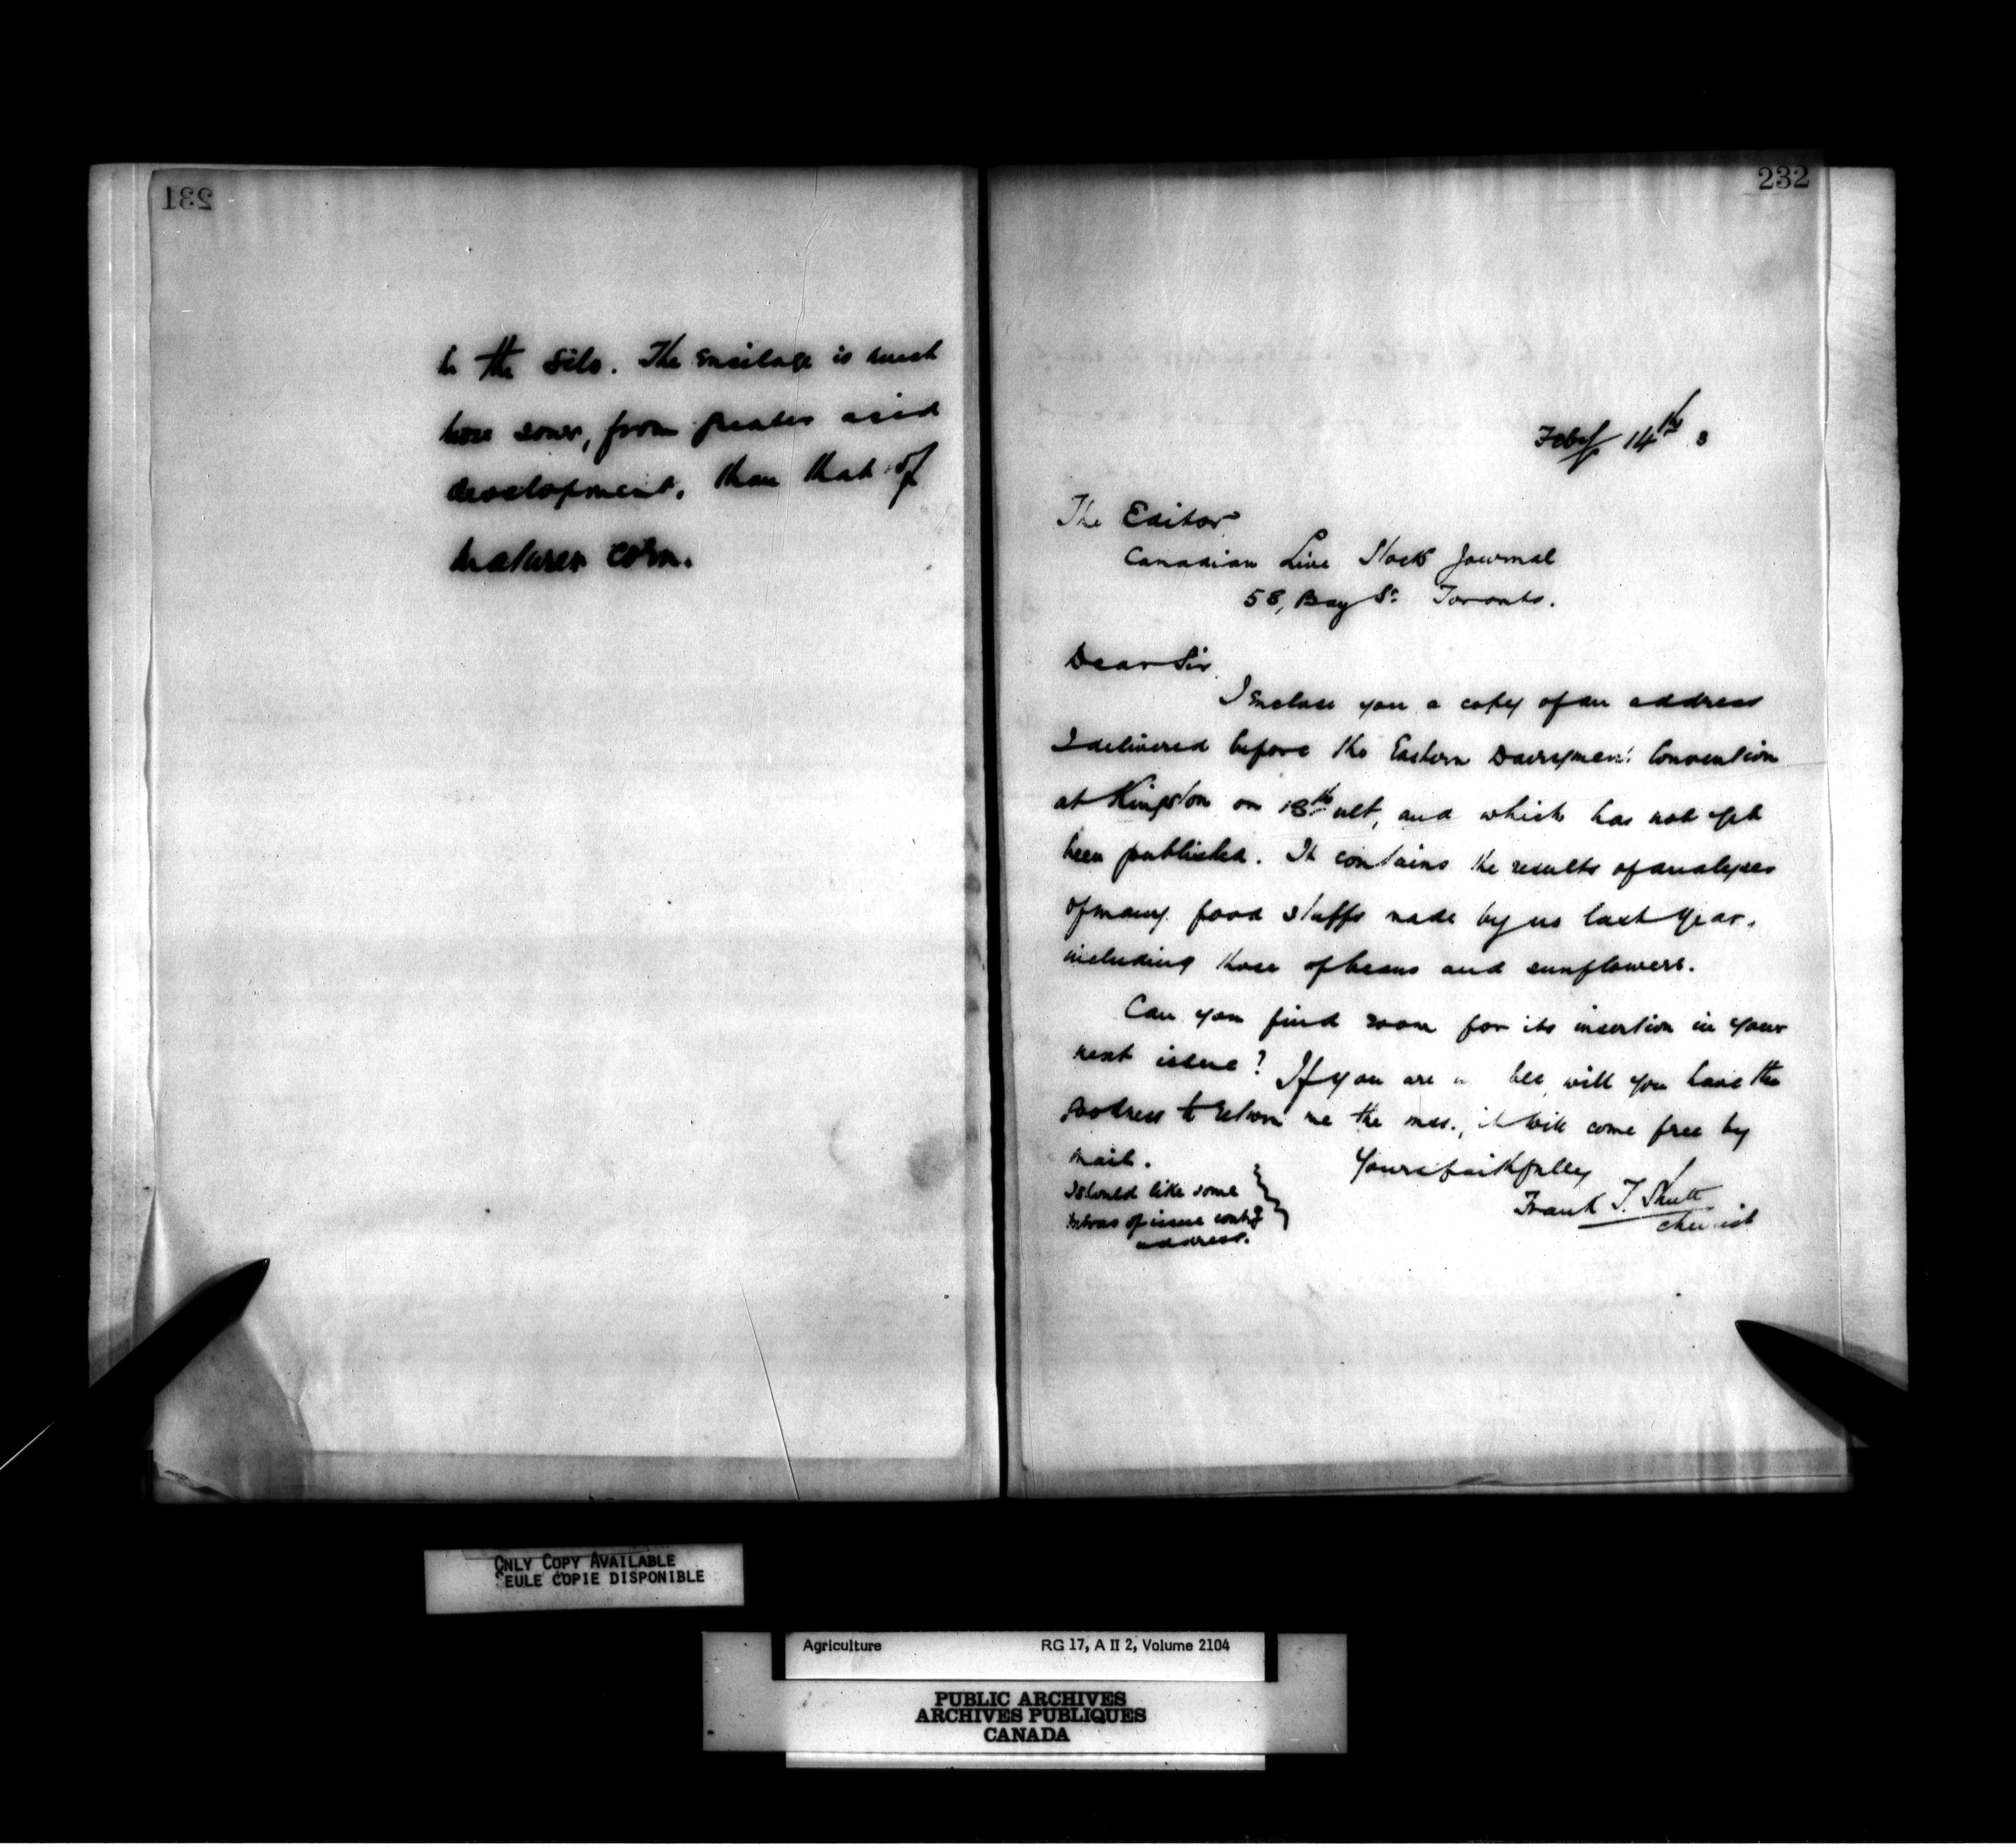 231
in the Silo. The Ensilage is much
more sour, from greater acid
development, than that of
maturer corn.
232
Feby 14th 3
The Editor
Canadian Live Stock Journal
58, Bay St. Toronto.
Dear Sir,
I enclose you a copy of an address
I delivered before the Eastern Dairymen's Convention
at Kingston on 18th ult, and which has not yet
been published. It contains the results of analyses
of many food stuffs made by us last year,
including those of beans and sunflowers.
Can you find room for its insertion in your
next issue? If you are will you have the
to return me the mss., it will come free by
mail.
Yours faithfully
Frank T. Shutt
Chemist
I should like some
extras of issue contg
address.
ONLY COPY AVAILABLE
SEULE COPIE DISPONIBLE
Agriculture RG 17, A II 2, Volume 2104
PUBLIC ARCHIVES
ARCHIVES PUBLIQUES
CANADA